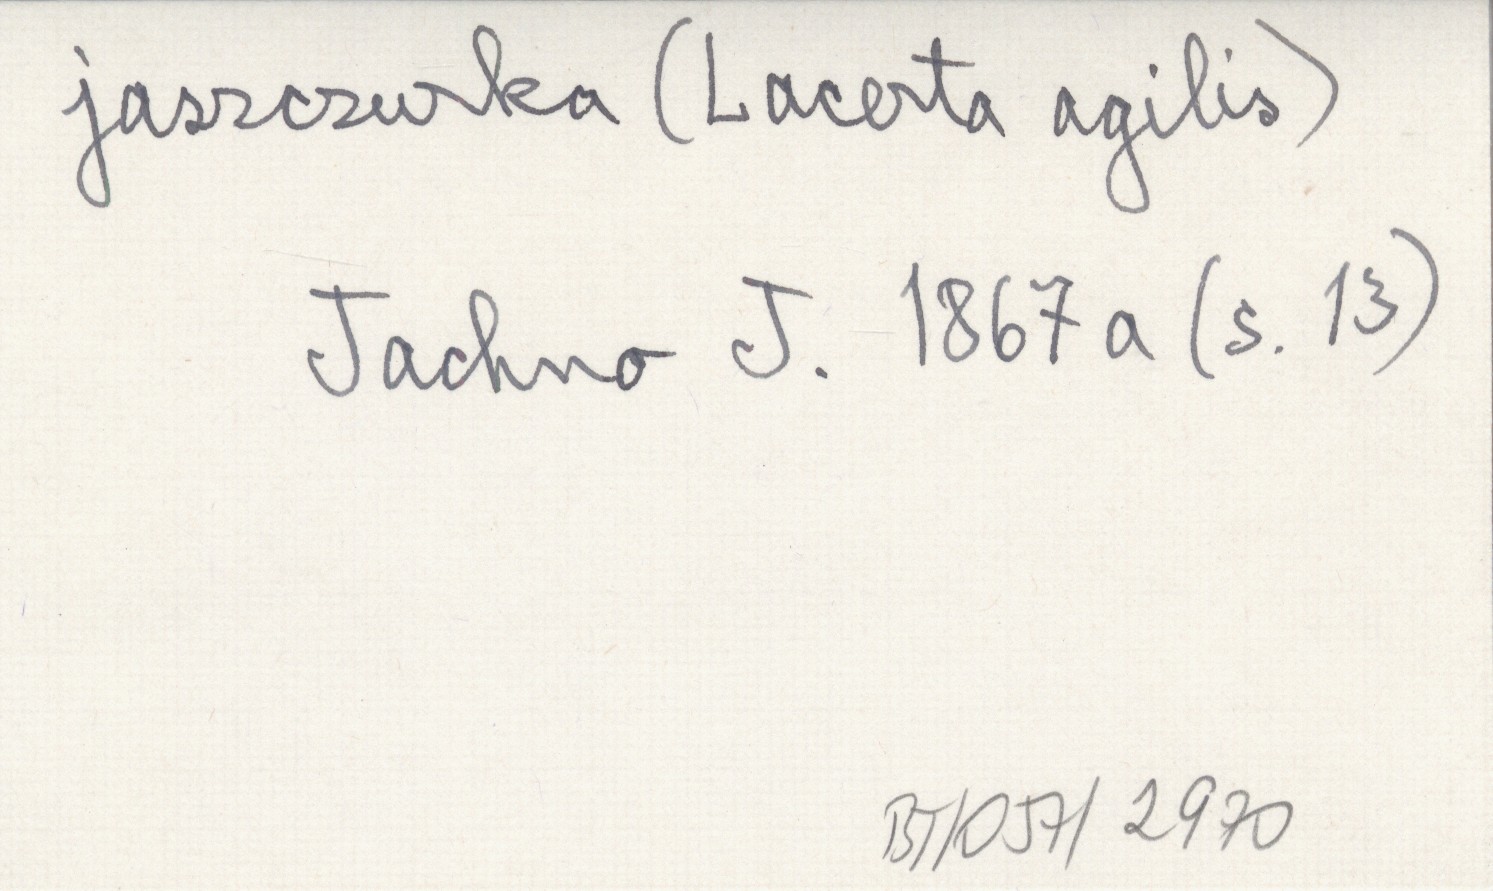 jaszczurka (Lacerta agilis)
Jachno J. 1867a (s. 13)
BT/057/2970